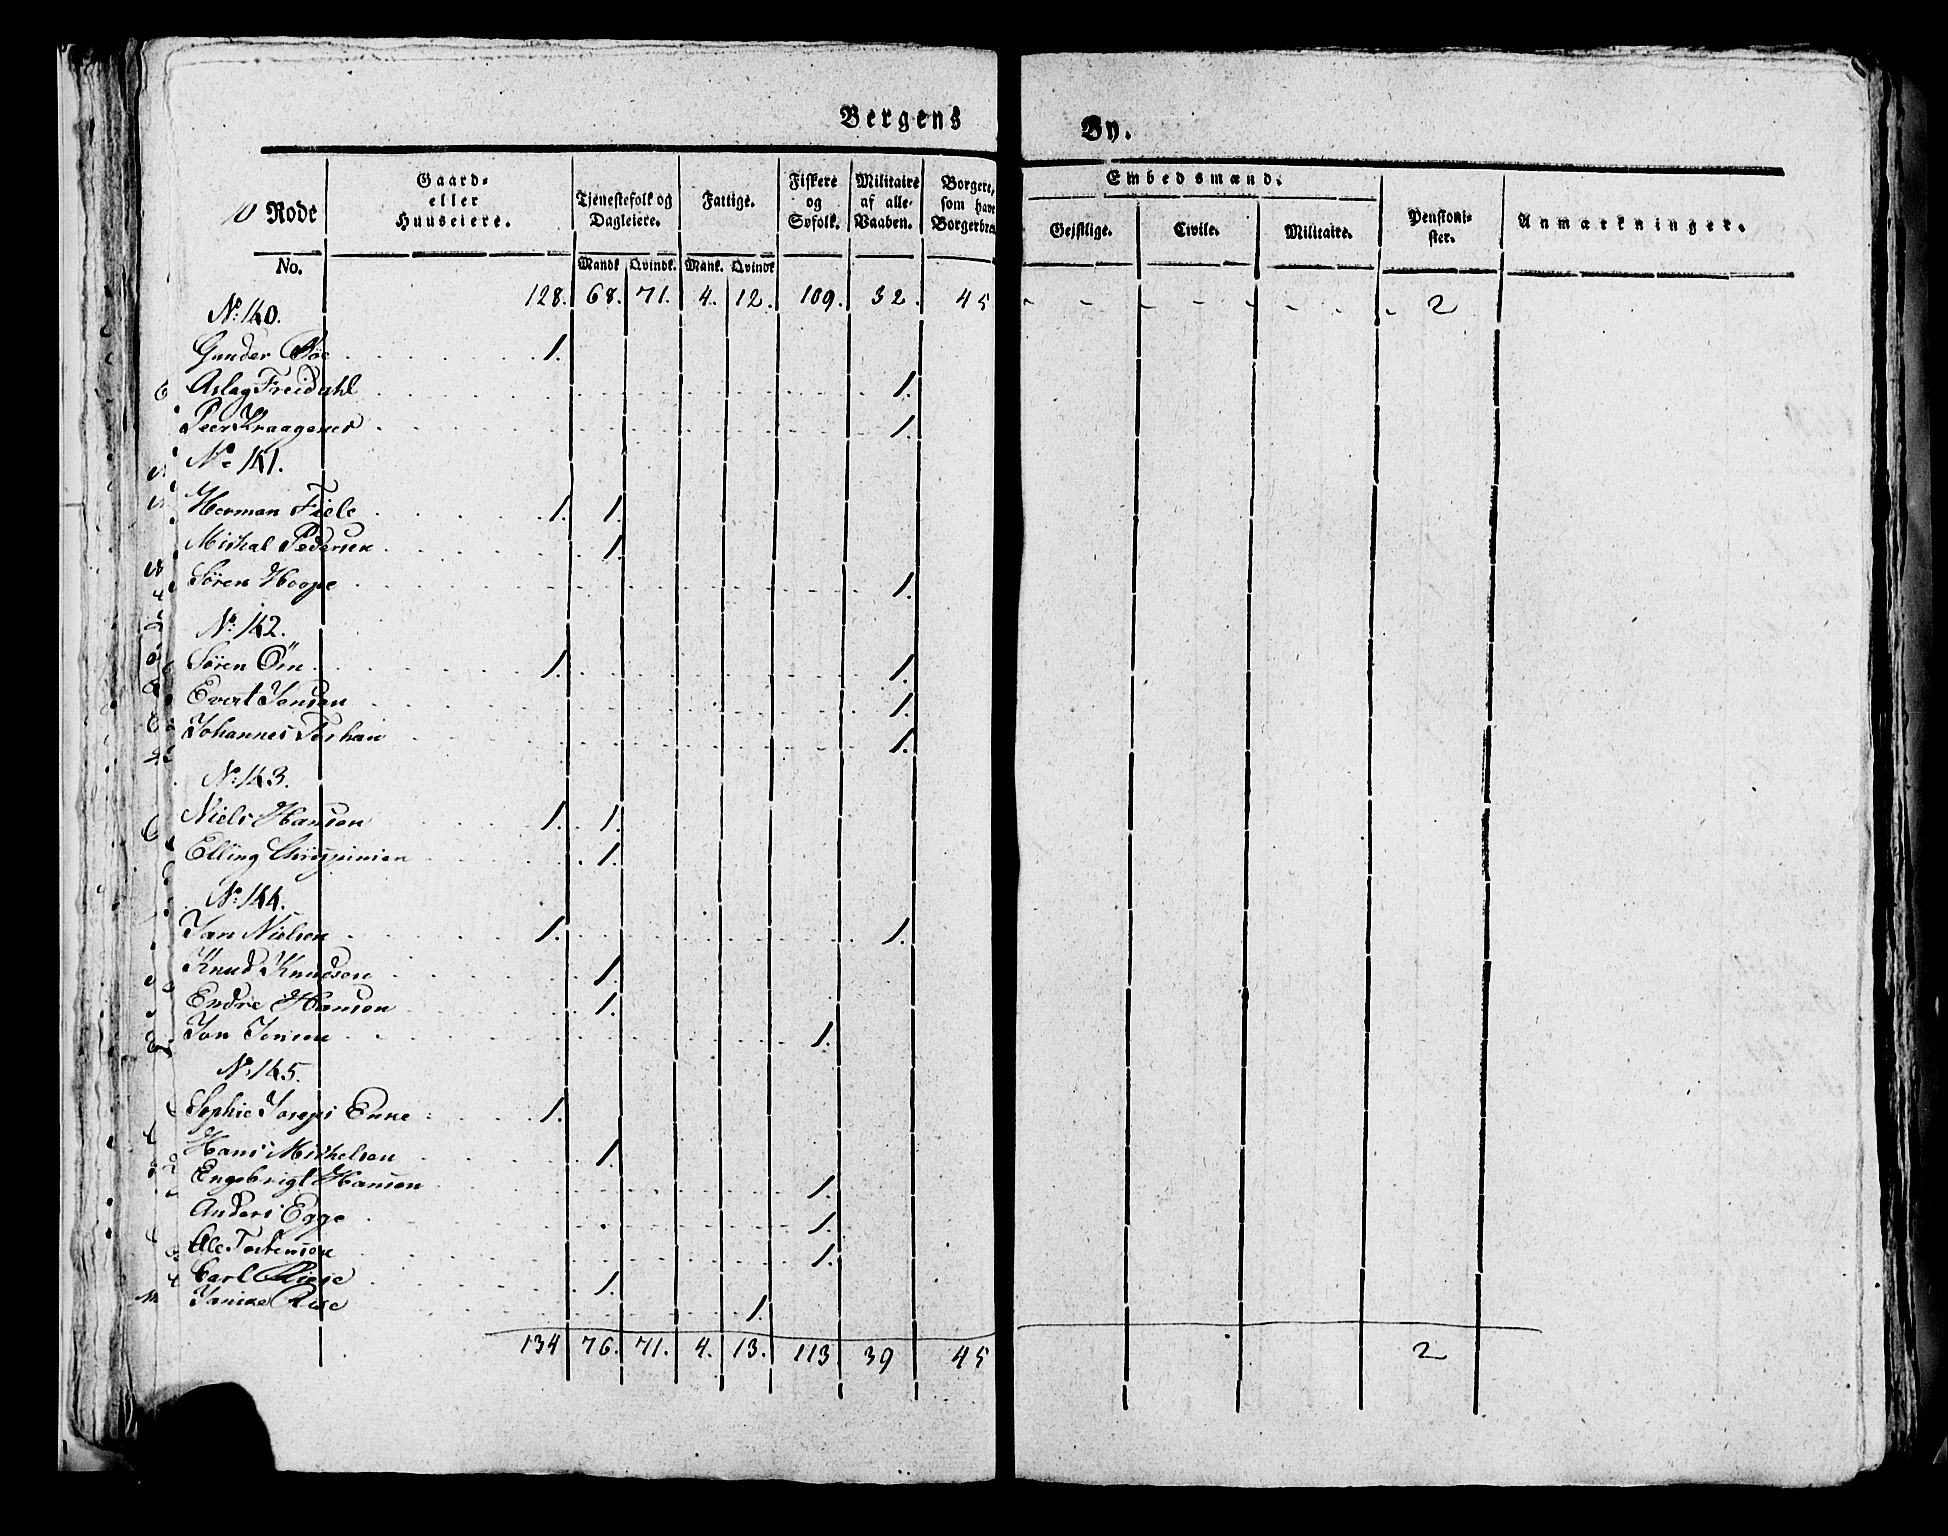 Bergens By.
10 Rode No.
Gaard- eller Huuseiere.
Tjenestefolk og Dagleiere. Mandk. Qvindk.
Fattige. Mank. Qvindk.
Fiskere og Søfolk.
Militaire af alle Vaaben.
Borgere, som have Borgerbre
Embedsmænd.
Gejstlige. Civile. Militaire.
Pensionister.
Anmærkninger.
128. 68. 71. 4. 12. 109. 32. 45 2
No. 140.
Gunder Bøe 1.
Aslag Freidahl 1.
Peer Kraagenes 1.
No. 141.
Herman Fiele 1. 1.
Michal Pedersen 1.
Søren Hoppe 1.
No. 142.
Søren Øin 1. 1.
Evert Jonson 1.
Johannes 1.
No. 143.
Niels Hanson 1. 1.
Elling 1.
No. 144.
Jan Nielsen 1. 1.
Knud Knudson 1.
Endre Hanson 1.
Jon Jensen 1.
No. 145.
Sophie Enke 1.
Hans Michelsen 1.
Engebrigt Hanson 1.
Anders Egge 1.
Ole Torkenson 1.
Carl Riise 1.
1.
134 76. 71. 4. 13. 113 39 45 2